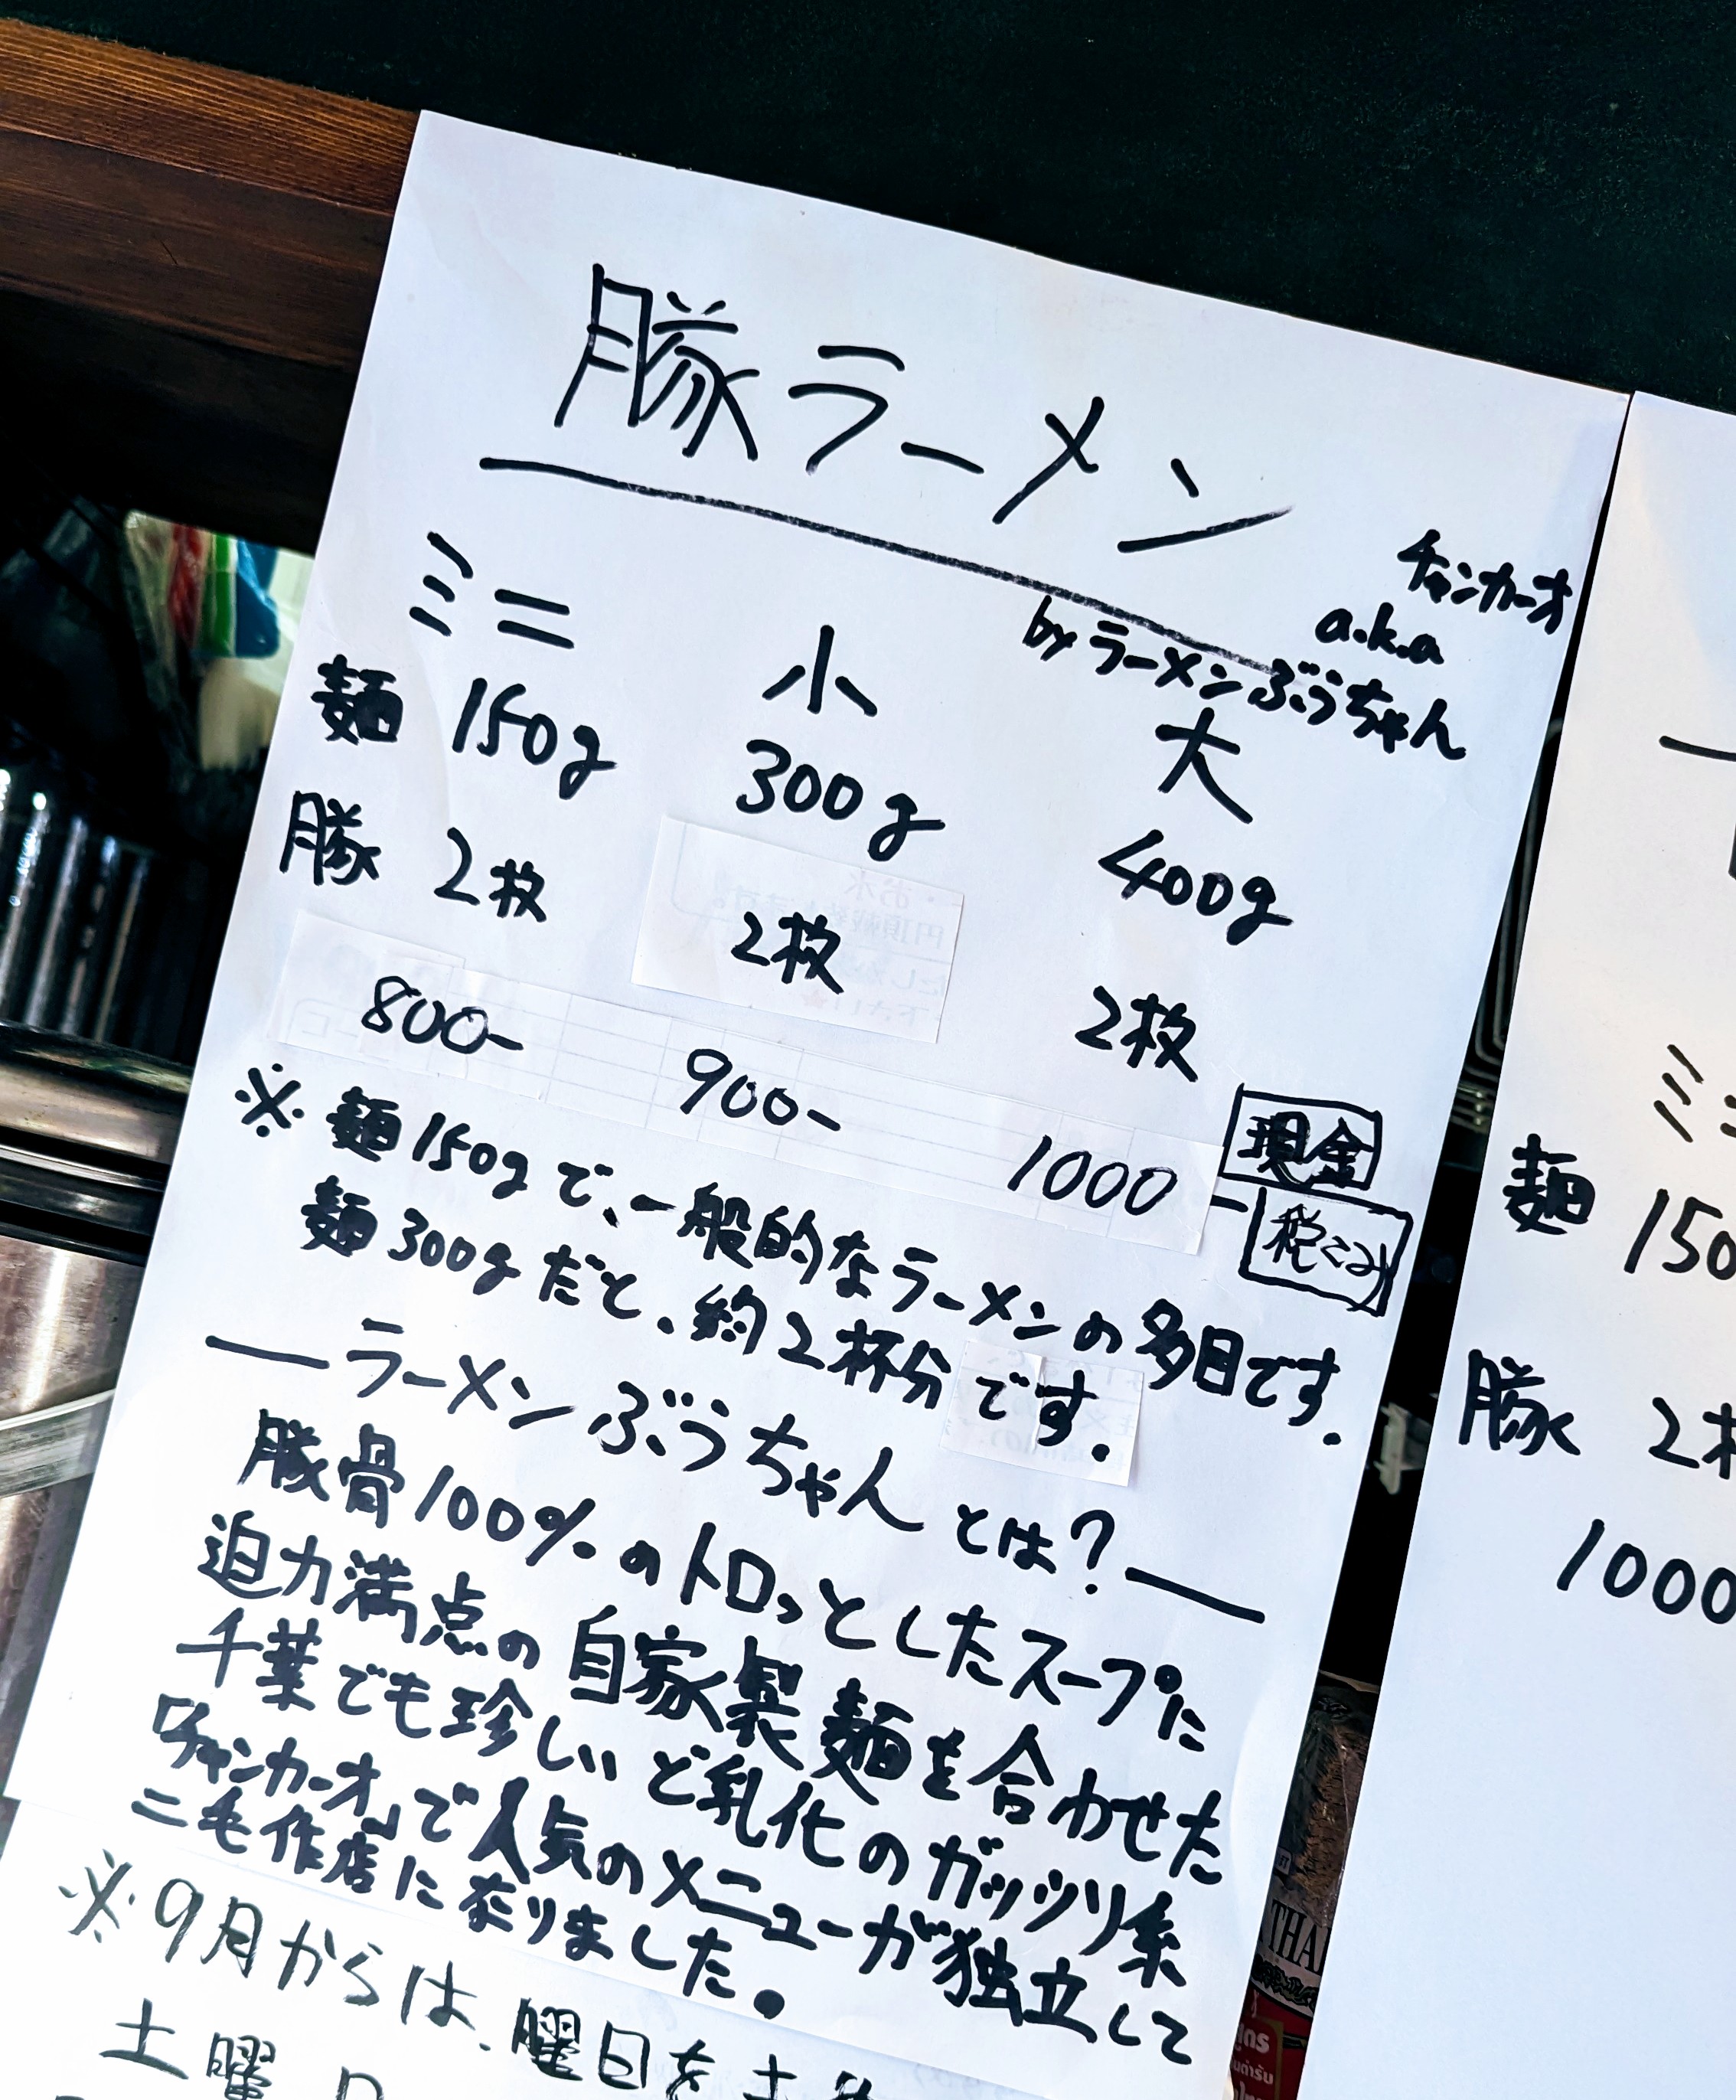 豚ラーメン
チャンカーオ
a.k.a
by ラーメンぶうちゃん
ミニ 小 大
麺 150g 300g 400g
豚 2枚 2枚 2枚
800- 900- 1000-
現金
税こみ
※麺150gで、一般的なラーメンの多目です.
麺300gだと、約2杯分です.
—ラーメンぶうちゃんとは?—
豚骨100%のトロっとしたスープに
迫力満点の自家製麺を合わせた
千葉でも珍しいど乳化のガッツリ系
「チャンカーオ」で人気のメニューが独立して
二毛作店に在りました。
※9月からは、曜日を
土曜
ミニ
麺 150
豚 2枚
1000
THAI